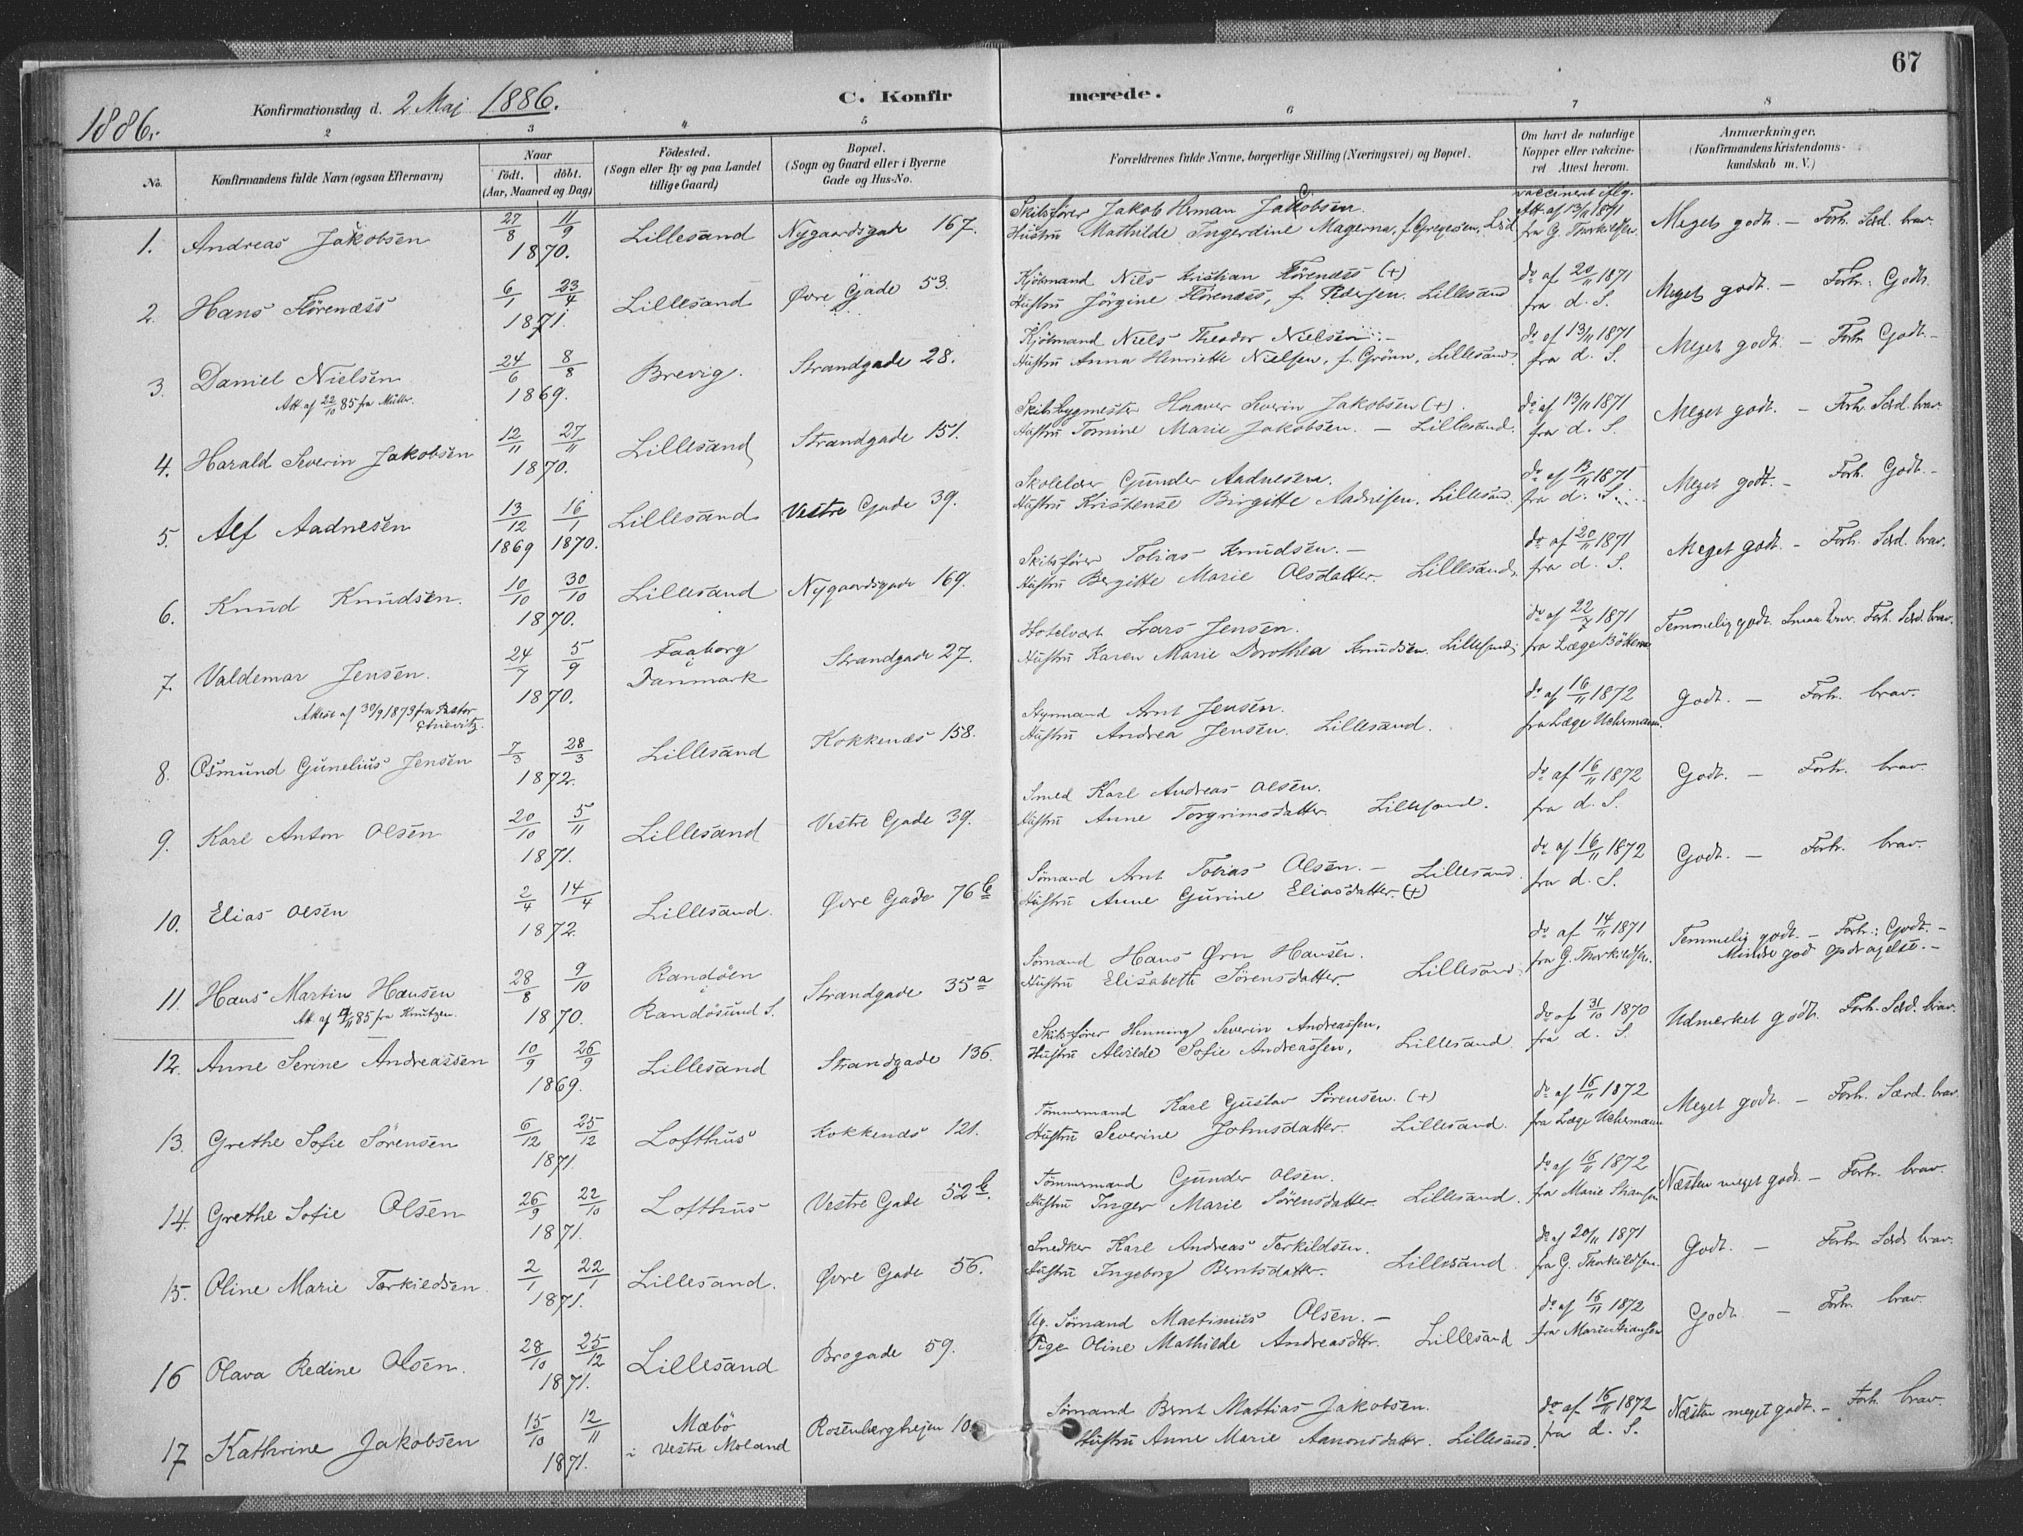 67
1886.
Konfirmationsdag d. 2 Maj 1886.
C. Konfirmerede.
2 3 4 5 6 7 8
No.
Konfirmandens fulde Navn (ogsaa Efternavn)
Naar
födt. döbt.
(Aar, Maaned og Dag)
Födested.
(Sogn eller By og paa Landet
tillige Gaard)
Bopæl.
(Sogn og Gaard eller i Byerne
Gade og Hus-No.
Forældrenes fulde Navne, borgerlige Stilling (Næringsvei) og Bopæl.
Om havt de naturlige
Kopper eller vaccine-
ret Attest herom.
Anmærkninger.
(Konfirmandens Kristendoms-
kundskab m. V.)
1. Andreas Jakobsen 27/8 11/9 1870. Lillesand Nygaardsgade 167.
Skibsfører Jakob Herman Jakobsen.
Hustru Mathilde Ingerdine Magerna, f. Gregesen, L.sd.
vaccineret Flg. Att. af 13/11 1871 fra G. Thorkildsen.
Meget godt. – Forh. Særd. brav.
2. Hans Flörenæss 6/1 23/4 1871. Lillesand Øvre Gade 53.
Kjöbmand Niels Kristian Flörenæss (+)
Hustru Jörgine Flörenæss, f. Pedersen. Lillesand
do af 20/11 1871 fra d. S.
Meget godt. – Forh.: Godt.
3. Daniel Nielsen 24/6 8/8 1869. Brevig. Strandgade 28.
Att. af 22/10 85 fra Müller.
Kjöbmand Niels Theodor Nielsen. –
Hustru Anna Henriette Nielsen, f. Grönn, Lillesand.
do af 13/11 1871 fra d. S.
Meget godt. – Forh. Godt. –
4. Harald Severin Jakobsen 12/11 27/11 1870. Lillesand Strandgade 151.
Skibsbygmester Haaver Severin Jakobsen (+).
Hustru Tomine Marie Jakobsen. – Lillesand.
do af 13/11 1871 fra d. S.
Meget godt. – Forh. Særd. brav.
5. Alf Aadnesen 13/12 1869 16/1 1870. Lillesand Vestre Gade 39.
Skolelærer Gunder Aadnesen.
Hustru Kristense Birgitte Aadnesen. Lillesand.
do af 13/11 1871 fra d. S.
Meget godt. – Forh. Godt. –
6. Knud Knudsen. 10/10 30/10 1870. Lillesand Nygaardsgade 169.
Skibsfører Tobias Knudsen. –
Hustru Bergitte Marie Olsdatter. Lillesand.
do af 20/11 1871 fra d. S.
Meget godt. – Forh. Særd. brav.
7. Valdemar Jensen. 24/7 5/9 1870. Faaborg i Danmark Strandgade 27.
Attest af 30/9 1873 fra Pastor
Hotelvært Lars Jensen.
Hustru Karen Marie Dorothea Knudsen. Lillesand
do af 22/7 1871 fra Læge
Temmelig godt. Forh. Særd. brav.
8. Osmund Gunelius Jensen 7/3 28/3 1872. Lillesand Kokkenæs 158.
Styrmand Arnt Jensen.
Hustru Andrea Jensen. Lillesand.
do af 16/11 1872 fra Læge Uchermann
Godt. – Forh. brav.
9. Karl Anton Olsen 20/10 5/11 1871. Lillesand Vestre Gade 39.
Smed Karl Andreas Olsen.
Hustru Anne Torgrimsdatter Lillesand.
do af 16/11 1872 fra d. S.
Godt. – Forh. brav.
10. Elias Olsen 2/4 14/4 1872. Lillesand. Øvre Gade 76 b
Sömand Arnt Tobias Olsen. – Lillesand
Hustru Anne Gurine Eliasdatter. (+)
do af 16/11 1872 fra d. S.
Godt. – Forh. brav.
11. Hans Martin Hansen 28/8 9/10 1870. Randöen i Randösund S. Strandgade 35 a
Att. af 85 fra Knutzen.
Sömand Hans Ørn Hansen.
Hustru Elisabeth Sörensdatter. Lillesand
do af 14/11 1871 fra G. Thorkildsen.
Temmelig godt. – Forh.: Godt. –
Mindre god opdragelse. –
12. Anne Serine Andreassen 10/9 26/9 1869. Lillesand Strandgade 136.
Skibsfører Henning Severin Andreassen,
Hustru Alvilde Sofie Andreassen, Lillesand
do af 31/10 1870 fra d. S.
Udmerket godt. Forh. Særd. brav.
13. Grethe Sofie Sörensen 6/12 25/12 1871. Lofthus Kokkenæs 121.
Tömmermand Karl Gustav Sörensen. (+)
Hustru Severine Johnsdatter. Lillesand.
do af 16/11 1872 fra Læge Uchermann
Meget godt. – Forh. Særd. brav.
14. Grethe Sofie Olsen 26/9 22/10 1871. Lofthus Vestre Gade 52 b.
Tömmermand Gunder Olsen.
Hustru Inger Marie Sörensdatter. Lillesand.
do af 16/11 1872 fra Marie
Næsten meget godt. – Forh. brav.
15. Oline Marie Terkildsen. 2/1 22/1 1871. Lillesand. Øvre Gade 56.
Snedker Karl Andreas Terkildsen.
Hustru Ingeborg Berntsdatter. Lillesand.
do af 20/11 1871 fra G. Thorkildsen.
Godt. – Forh. Særd. brav.
16 Olava Redine Olsen. 28/10 25/12 1871. Lillesand Brogade 59.
Ug. Sömand Martinius Olsen. –
Pige Oline Mathilde Andreasdtr. Lillesand
do af 16/11 1872 fra Marie
Godt. – Forh. brav.
17 Kathrine Jakobsen 15/10 12/11 1871. Mæbö i Vestre Moland Rosenberghejen 10
Sömand Bernt Mathias Jakobsen.
Hustru Anne Marie Aanonsdatter. Lillesand.
do af 16/11 1872 fra d. S.
Næsten meget godt. – Forh. brav.